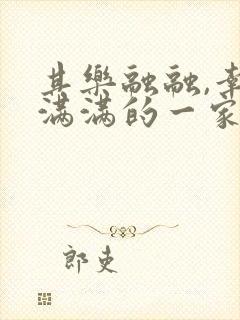 其樂融融,幸
滿滿的一家
郎吏